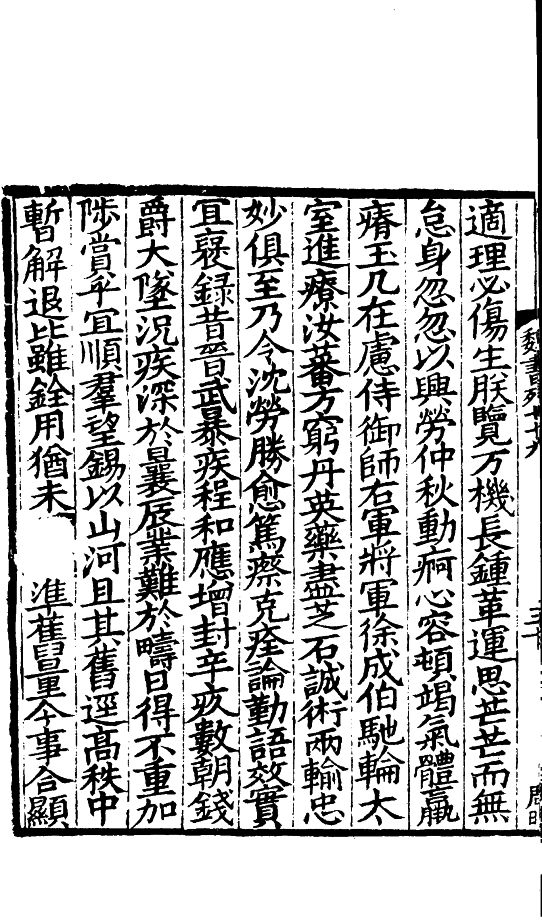 魏書列七十九
適理必傷生朕覽万機長鍾革運思芒芒而無
怠身忽忽以興勞仲秋動痾心容頓竭氣體羸
瘠玉几在慮侍御師右軍將軍徐成伯馳輪太
室進療汝蕃方窮丹英藥盡芝石誠術兩輸忠
妙俱至乃令沈勞勝愈篤瘵克痊論勤語效實
宜襃録昔晉武暴疾程和應增封辛疚數朝錢
爵大墜況疾深於曩辰業難於疇日得不重加
陟賞乎宜順羣望錫以山河且其舊逕高秩中
暫解退比雖銓用猶未 準舊量今事合顯